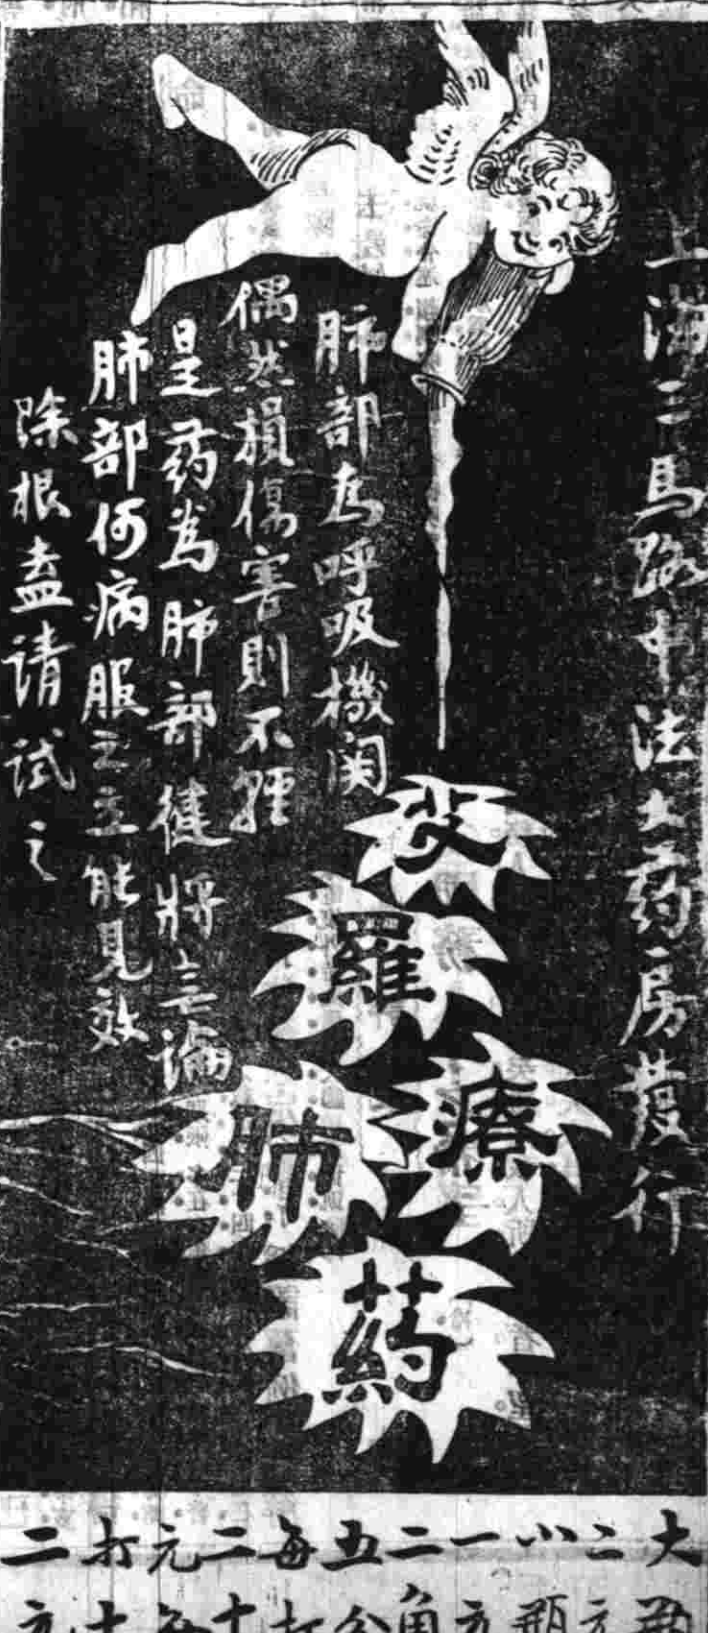 上海三馬路中法大药房發行
艾羅療肺葯
肺部為呼吸機関
偶然損傷害則不輕
是药為肺部健將無論
肺部何病服之立能見效
除根盍请试之
大
二元
小瓶
一元
二角
五分
每打
二十
元每
打十
二元